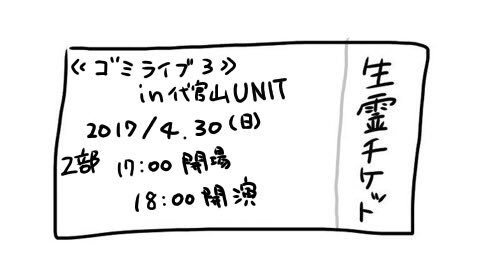 ≪ゴミライブ3≫
in代官山UNIT
2017/4.30(日)
2部 17:00開場
18:00開演
生霊チケット